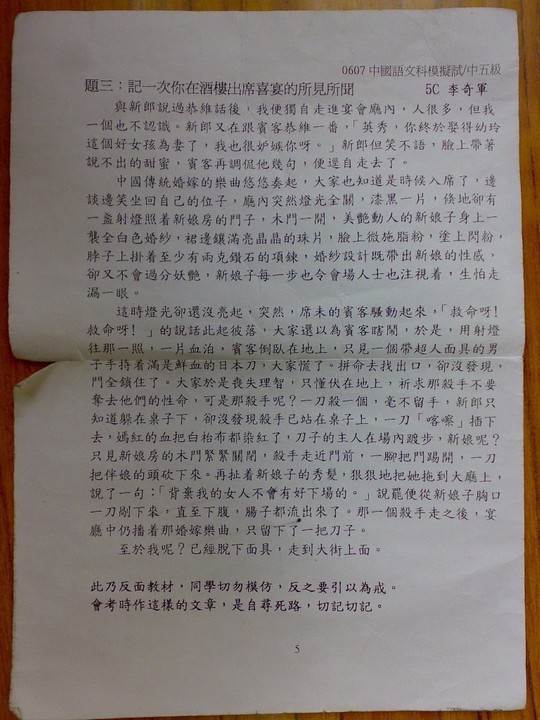 0607 中國語文科模擬試/中五級
題三：記一次你在酒樓出席喜宴的所見所聞 5C 李奇軍
與新郎說過恭維話後，我便獨自走進宴會廳內，人很多，但我
一個也不認識。新郎又在跟賓客恭維一番，「英秀，你終於娶得幼玲
這個好女孩為妻了，我也很妒嫉你呀。」新郎但笑不語，臉上帶著
說不出的甜蜜，賓客再調侃他幾句，便逕自走去了。
中國傳統婚嫁的樂曲悠悠奏起，大家也知道是時候入席了，邊
談邊笑坐回自己的位子，廳內突然燈光全關，漆黑一片，倏地卻有
一盞射燈照着新娘房的門子，木門一開，美艷動人的新娘子身上一
襲全白色婚紗，裙邊鑲滿亮晶晶的珠片，臉上微施脂粉，塗上閃粉，
脖子上掛着至少有兩克鑽石的項鍊，婚紗設計既帶出新娘的性感，
卻又不會過分妖艷，新娘子每一步也令會場人士也注視着，生怕走
漏一眼。
這時燈光卻還沒亮起，突然，席未的賓客騷動起來，「救命呀!
救命呀! 」的說話此起彼落，大家還以為賓客瞎鬧，於是，用射燈
往那一照，一片血泊，賓客倒臥在地上，只見一個帶超人面具的男
子手持着滿是鮮血的日本刀，大家慌了。拼命去找出口，卻沒發現，
門全鎖住了。大家於是喪失理智，只懂伏在地上，祈求那殺手不要
奪去他們的性命，可是那殺手呢？一刀殺一個，毫不留手，新郎只
知道躲在桌子下，卻沒發現殺手已站在桌子上，一刀「喀嚓」插下
去，嫣紅的血把白枱布都染紅了，刀子的主人在場內踱步，新娘呢？
只見新娘房的木門緊緊關閉，殺手走近門前，一腳把門踢開，一刀
把伴娘的頭砍下來。再扯着新娘子的秀髮，狠狠地把她拖到大廳上，
說了一句：「背棄我的女人不會有好下場的。」說罷便從新娘子胸口
一刀剮下來，直至下腹，腸子都流出來了。那一個殺手走之後，宴
廳中仍播着那婚嫁樂曲，只留下了一把刀子。
至於我呢？已經脫下面具，走到大街上面。
此乃反面教材，同學切勿模仿，反之要引以為戒。
會考時作這樣的文章，是自尋死路，切記切記。
5